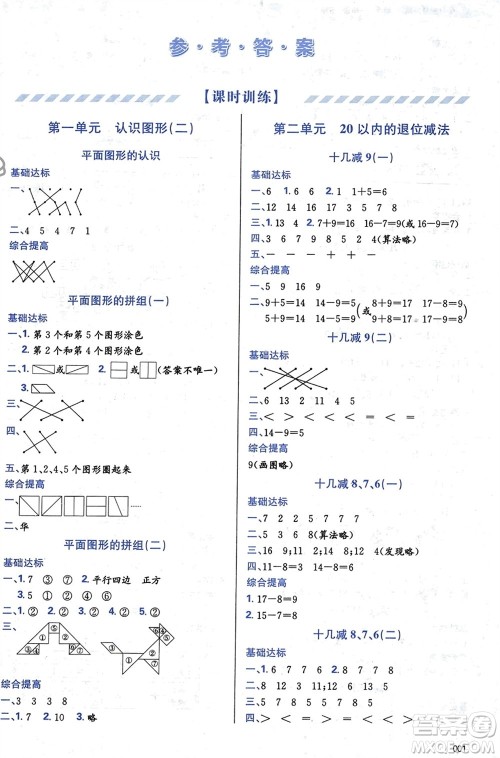 参·考·答·案
【课时训练】
第一单元 认识图形(二)
平面图形的认识
基础达标
一、
二、4 5 7 4 1
综合提高
平面图形的拼组(一)
基础达标
一、1. 第3个和第5个图形涂色
2. 第2个和第4个图形涂色
二、1. 或 2. 或 (答案不唯一)
3.
三、
四、
五、第1、2、4、5个图形圈起来
综合提高
一、
二、华
平面图形的拼组(二)
基础达标
一、1. 7 ③ ④ 2. 平行四边 正方
3. 5 ① ② ① ② ①
二、1. ① ② 2. ② ④
三、
综合提高
一、3 3 3 8
二、1. 7 2. 10 3. 略
第二单元 20以内的退位减法
十几减9(一)
基础达标
一、6 1. 6 2. 6 1 1+5=6
二、12 14 16 3 5 7
三、1. 13 4 2. 7+9=16(或9+7=16)
四、3 6 7 9 8 5 2 4(算法略)
五、- + - - + -
综合提高
一、5 9 16 9
二、9+5=14 14-9=5 8+9=17 17-8=9
5+9=14 14-5=9 9+8=17 17-9=8
十几减9(二)
基础达标
一、
二、6 13 2 11 4 5
三、< > < < < = < =
四、14-9=5
综合提高
9(画图略)
十几减8、7、6(一)
基础达标
一、7 7
二、8 5 8 6(算法略)
三、16 9;11 2;14 7(发现略)
四、> < > = > <
综合提高
一、17-8=9
二、17-8=9
十几减8、7、6(二)
基础达标
一、1. 8 2. 6 3. 7
二、13 7 7 8 7 8
三、6 5 7 9 4 8
四、> < > < > = < >
001